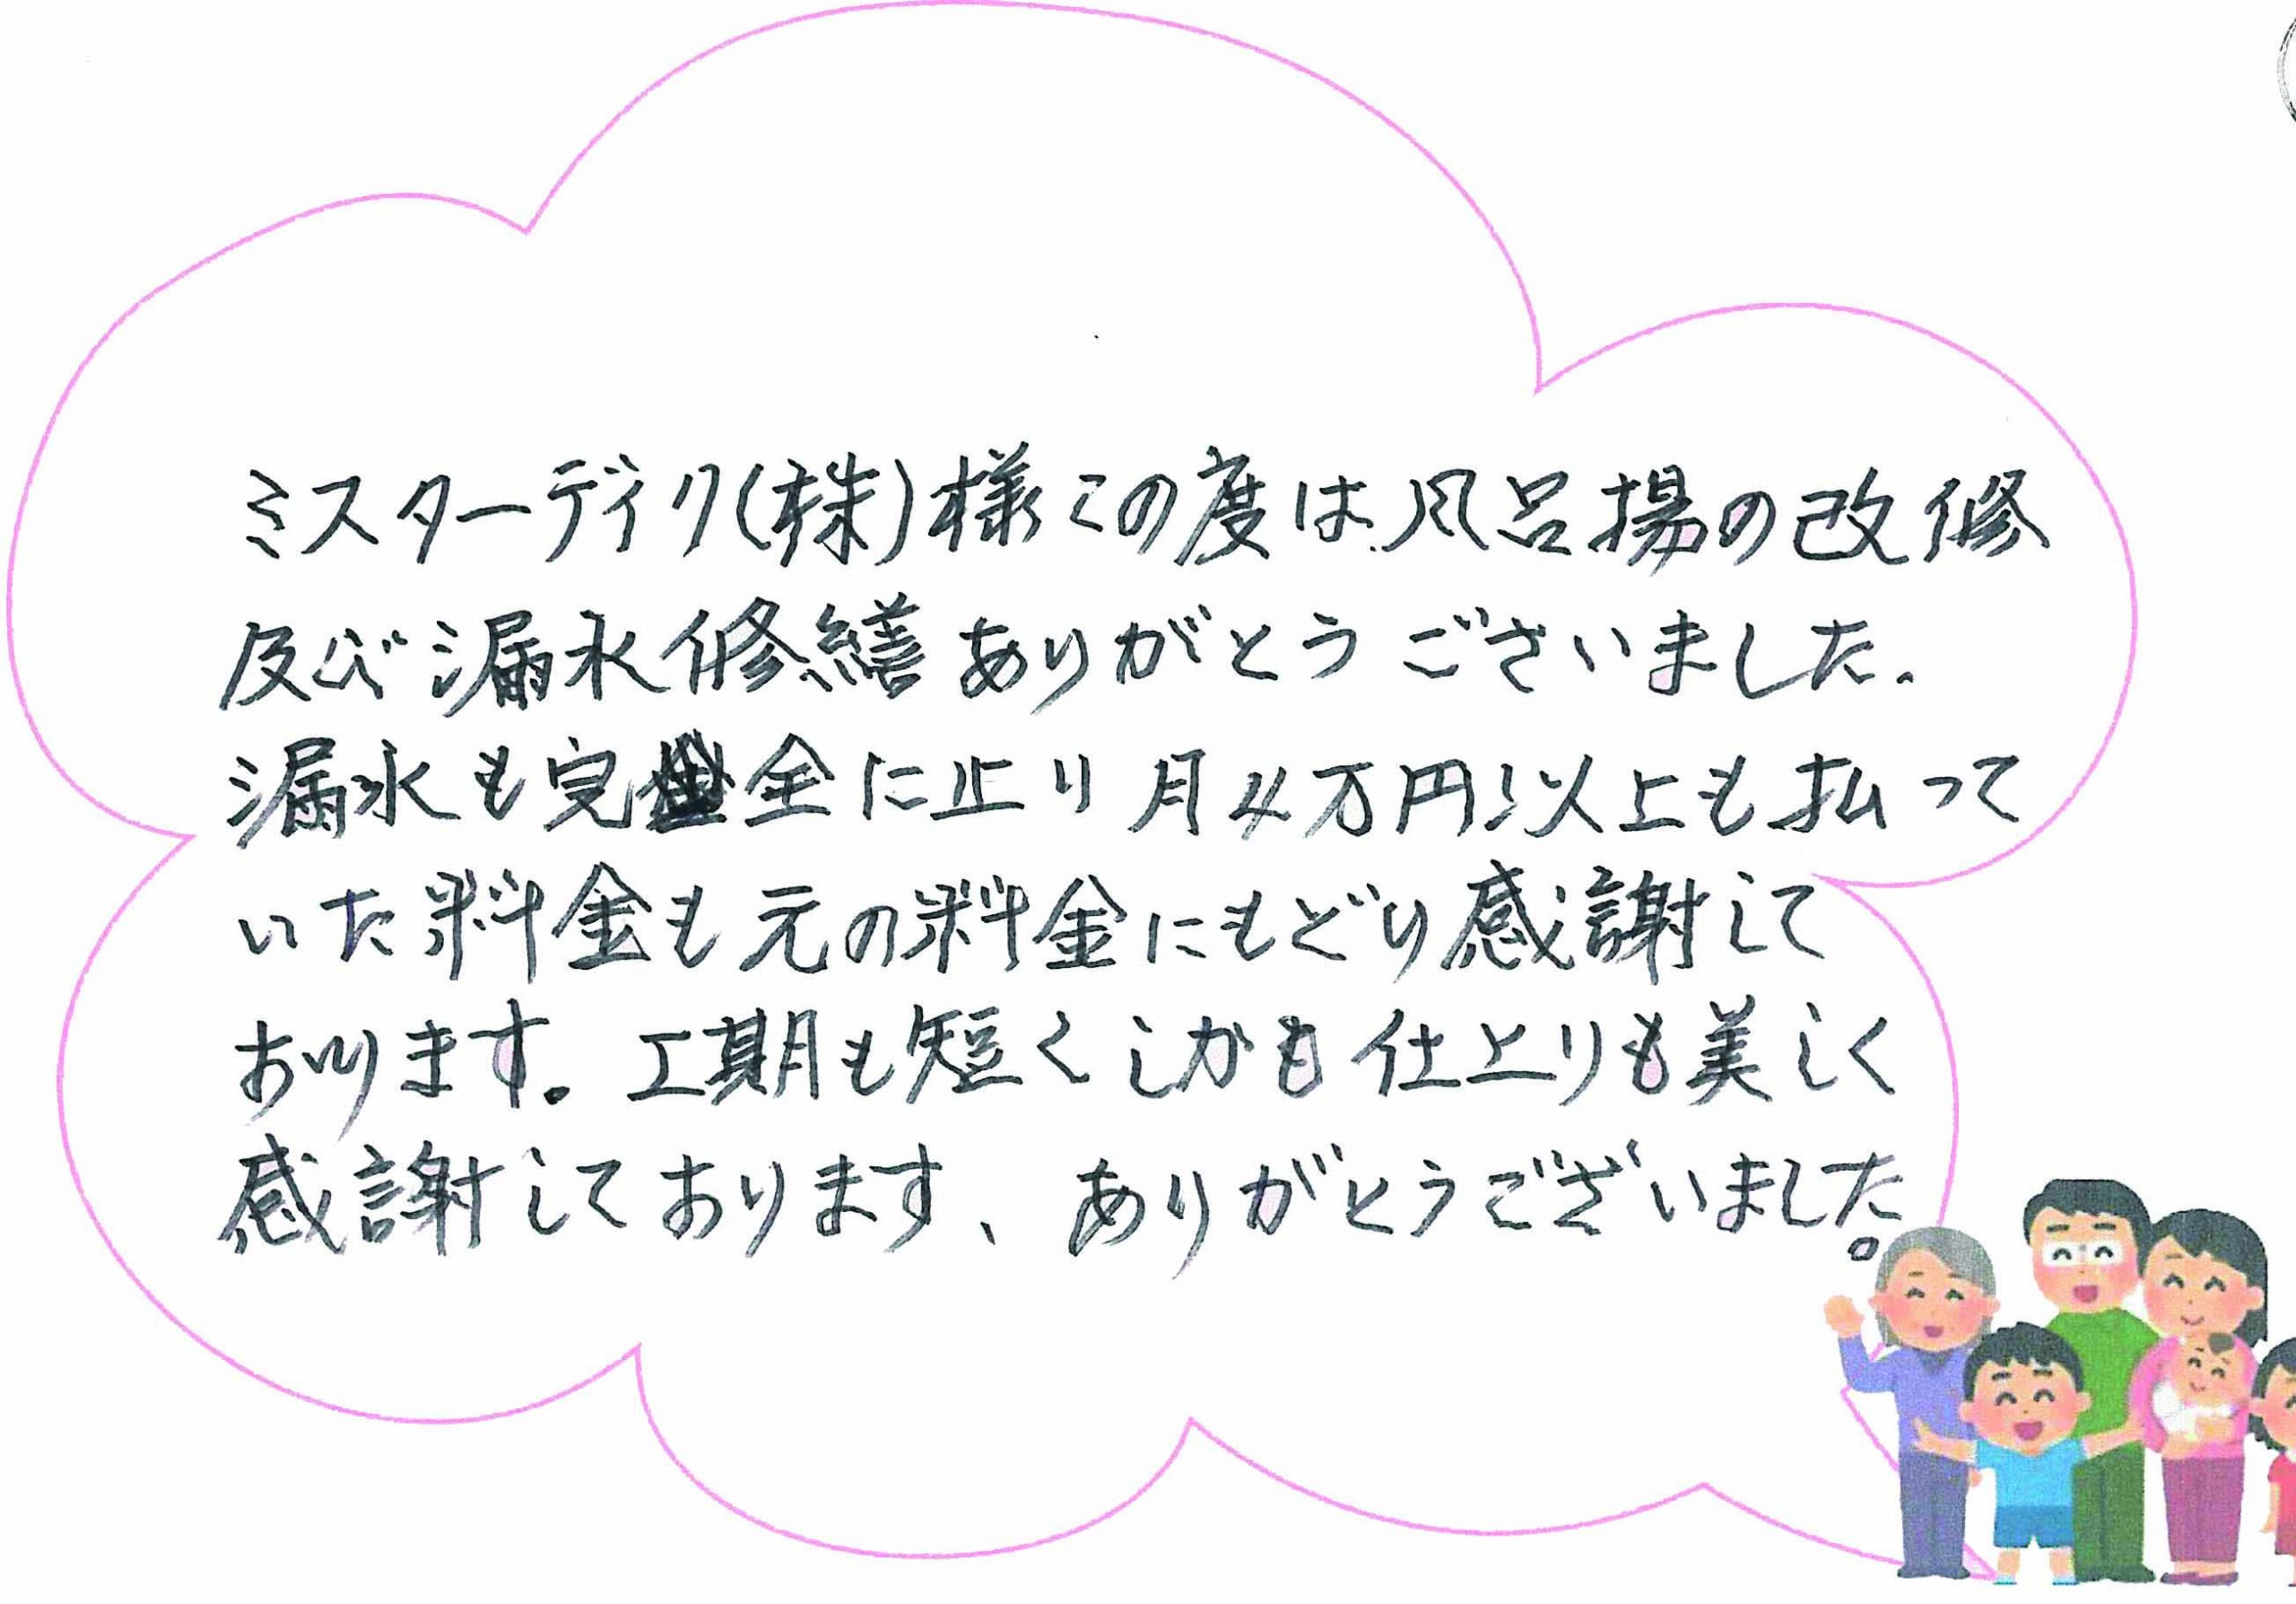 ミスターデイク(株)様この度は風呂場の改修
及び漏水修繕ありがとうございました.
漏水も完全に止り月4万円以上も払って
いた料金も元の料金にもどり感謝して
おります。工期も短くしかも仕上りも美しく
感謝しております、ありがとうございました。